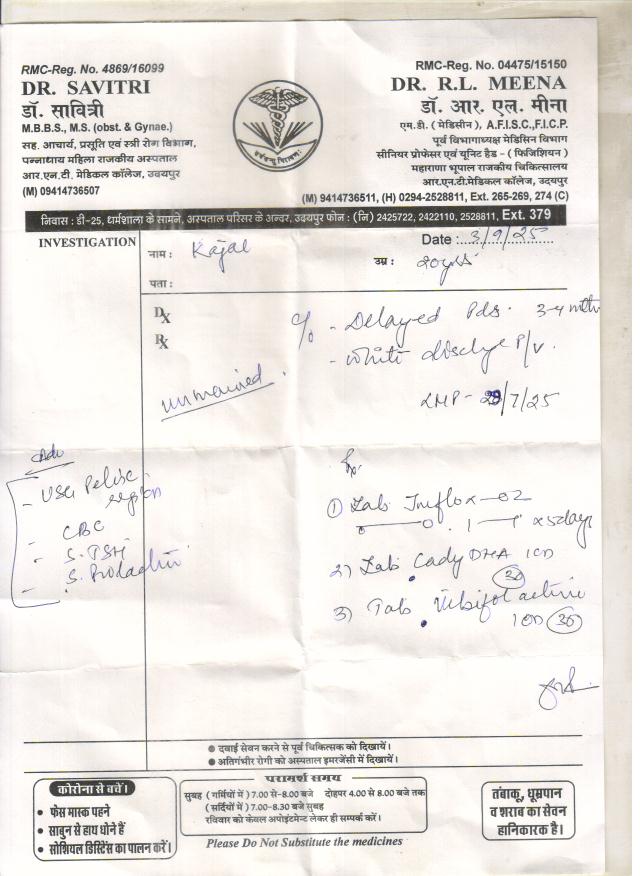 RMC-Reg. No. 4869/16099
DR. SAVITRI
डॉ. सावित्री
M.B.B.S., M.S. (obst. & Gynae.)
सह. आचार्य, प्रसूति एवं स्त्री रोग विभाग,
पन्नाधाय महिला राजकीय अस्पताल
आर.एन.टी. मेडिकल कॉलेज, उदयपुर
(M) 09414736507
RMC-Reg. No. 04475/15150
DR. R.L. MEENA
डॉ. आर. एल. मीना
एम.डी. ( मेडिसीन ), A.F.I.S.C.,F.I.C.P.
पूर्व विभागाध्यक्ष मेडिसिन विभाग
सीनियर प्रोफेसर एवं यूनिट हैड - ( फिजिशियन )
महाराणा भूपाल राजकीय चिकित्सालय
आर.एन.टी.मेडिकल कॉलेज, उदयपुर
(M) 9414736511, (H) 0294-2528811, Ext. 265-269, 274 (C)
निवास : डी-25, धर्मशाला के सामने, अस्पताल परिसर के अन्दर, उदयपुर फोन : (नि) 2425722, 2422110, 2528811, Ext. 379
INVESTIGATION
नाम : Kajal
Date : 3/9/25
उम्र : 20yrs
पता :
Dx
Rx
c/o - Delayed Pds. 3-4 mths
- white dischge P/V.
unmarried.
LMP - 29/7/25
Adv
- USG Pelvic region
- CBC
- S. TSH
- S. Prolactin
Rx
① Tab x 5days
2) Tab Cady DHA 1OD
30
3) Tab active
1OD 30
● दवाई सेवन करने से पूर्व चिकित्सक को दिखायें।
● अतिगंभीर रोगी को अस्पताल इमरजेंसी में दिखायें।
कोरोना से बचें।
• फेस मास्क पहने
• साबुन से हाथ धोने हैं
• सोशियल डिस्टेंस का पालन करें।
परामर्श समय
सुबह ( गर्मियों में ) 7.00 से-8.00 बजे दोहपर 4.00 से 8.00 बजे तक
( सर्दियों में ) 7.00-8.30 बजे सुबह
रविवार को केवल अपोइंटमेन्ट लेकर ही सम्पर्क करें।
Please Do Not Substitute the medicines
तंबाकू, धूम्रपान
व शराब का सेवन
हानिकारक है।